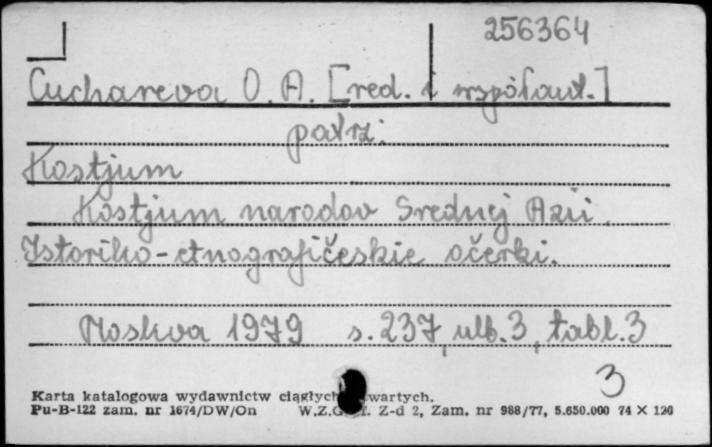 256364
Cuchareva O. A. [red. i współaut.]
patrz:
Kostjum
Kostjum narodov Srednej Azii.
Istoriko-etnografičeskie očerki.
Moskva 1979 s. 237, ulb. 3, tabl. 3
3
Karta katalogowa wydawnictw ciągłych
Pu-B-122 zam. nr 1674/DW/On W.Z.G Z-d 2, Zam. nr 988/77, 5.650.000 74 X 120